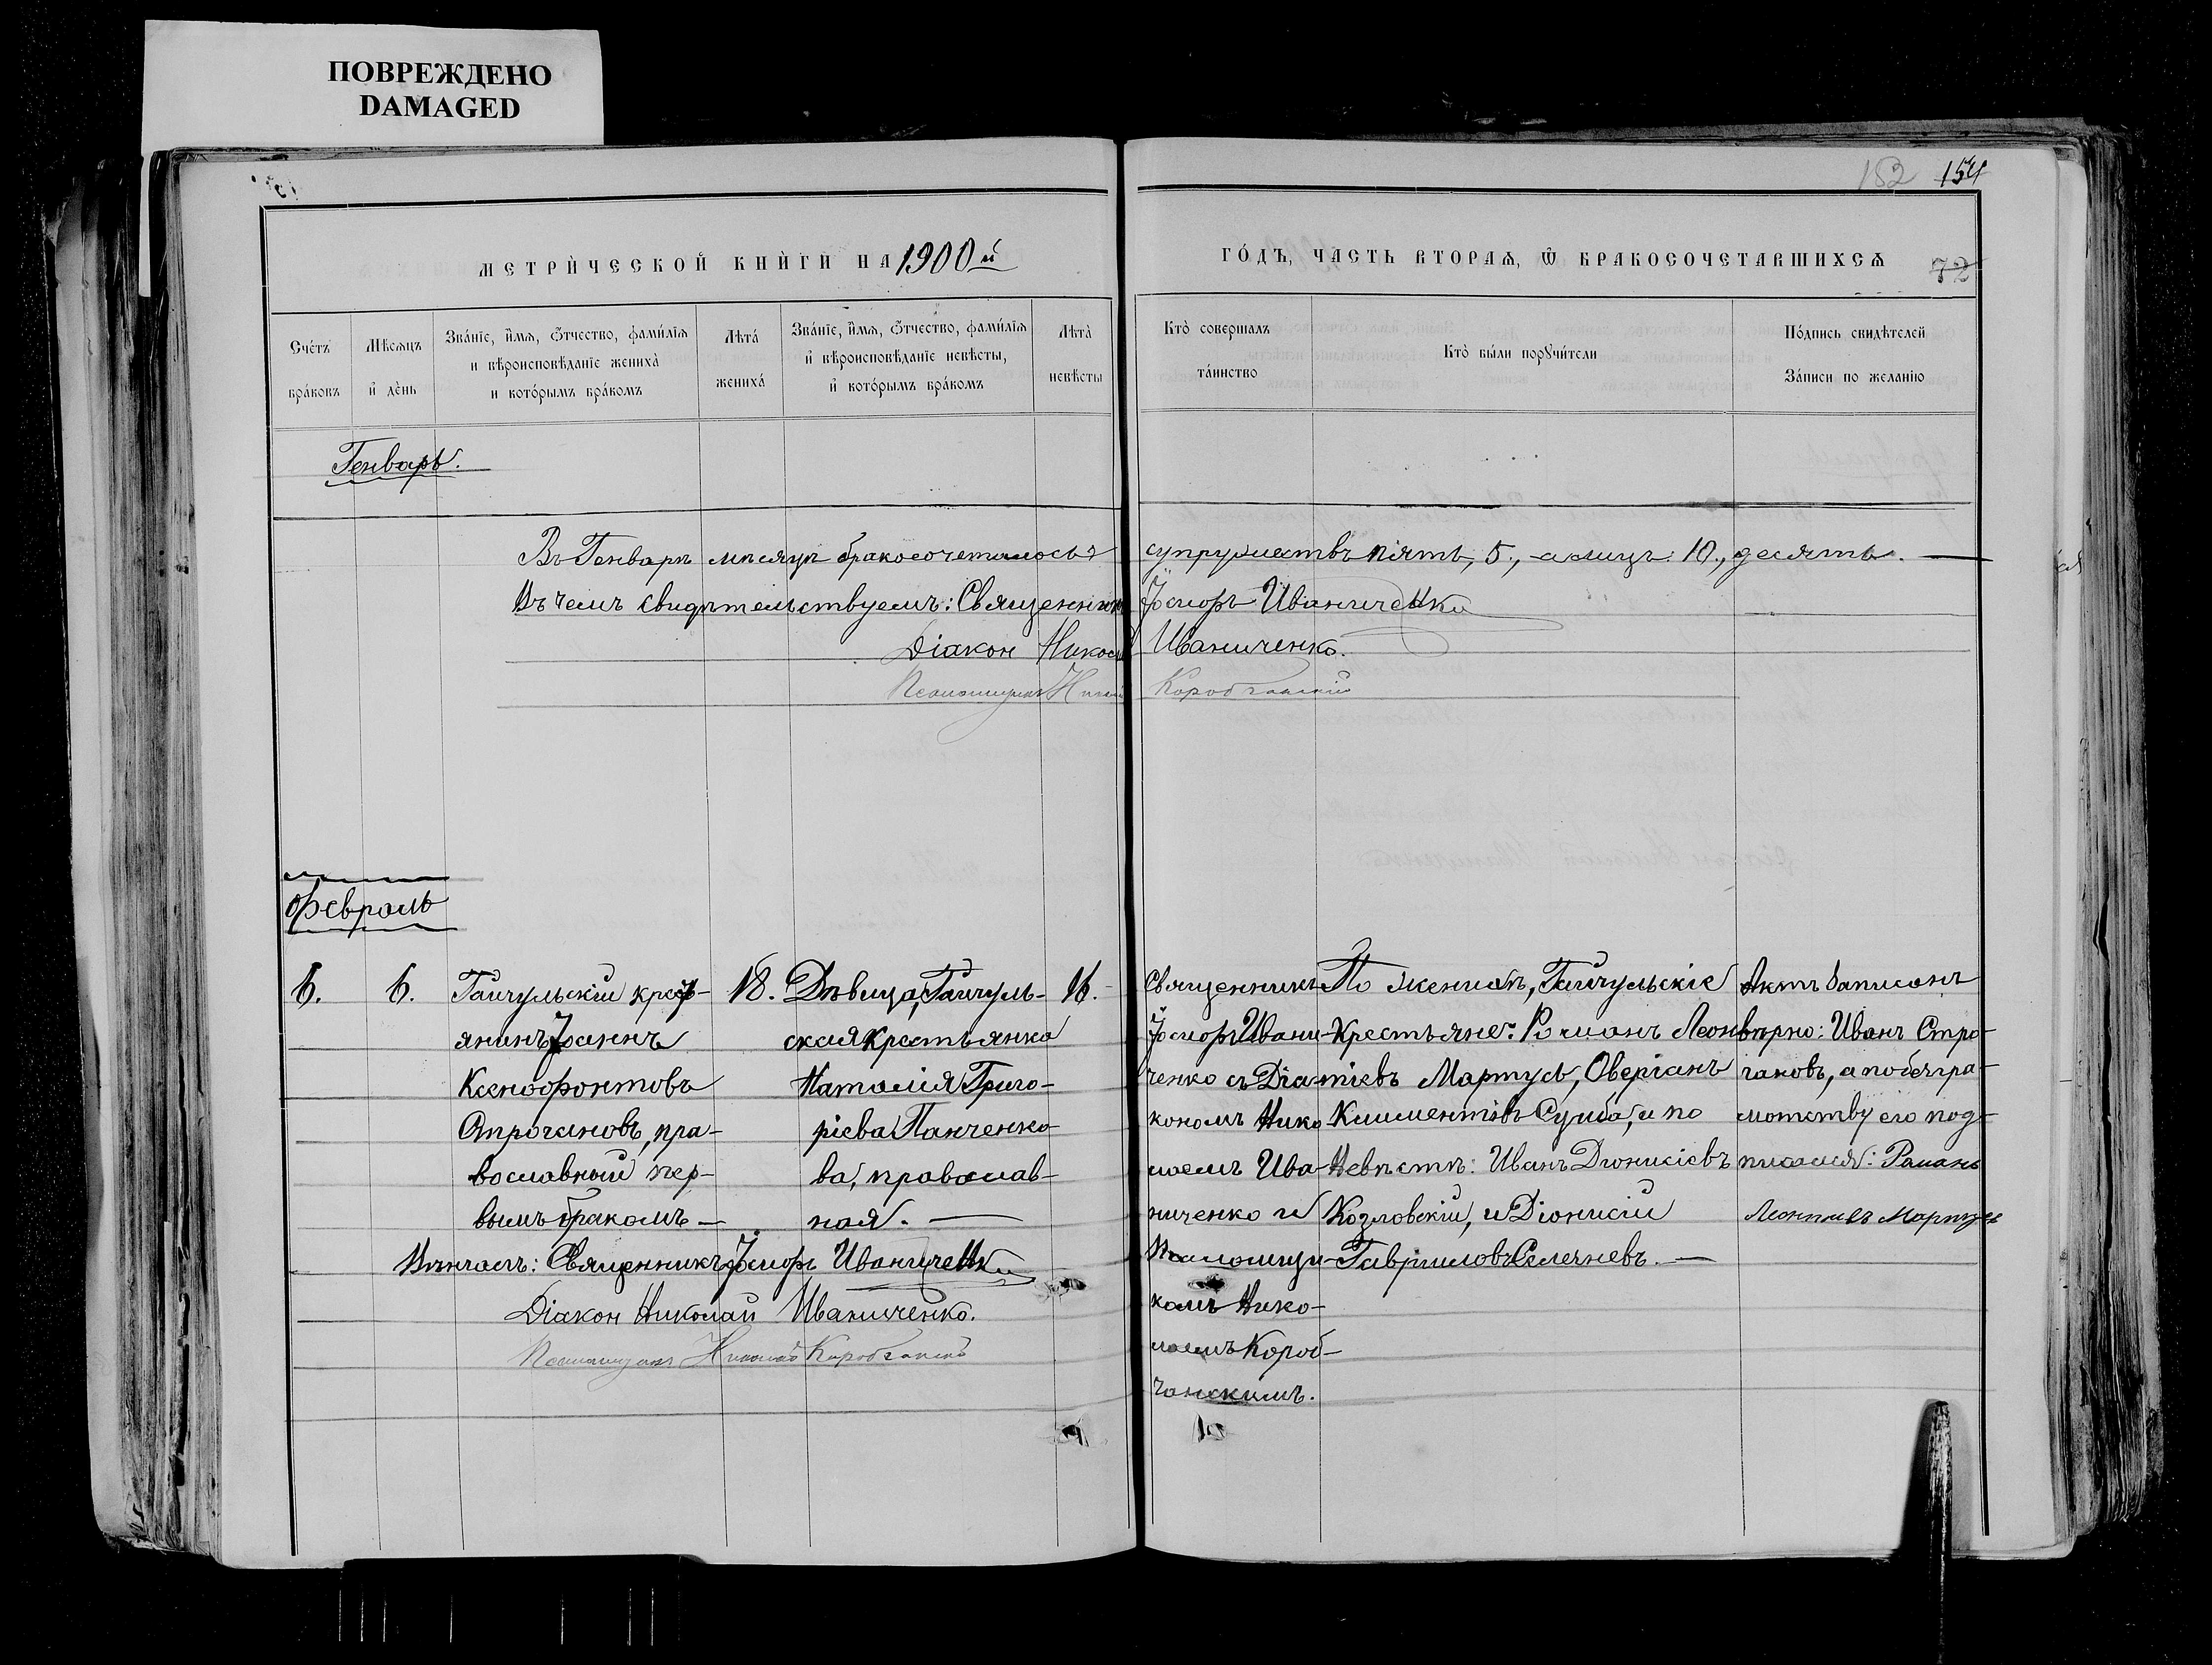 ПОВРЕЖДЕНО
DAMAGED
152 154
МЕТРИ́ЧЕСКОЙ КНИ́ГИ НА 1900й
ГО́ДЪ, ЧАСТЬ ВТОРАѦ, Ѿ БРАКОСОЧЕТАВШИХСѦ
72
Сче́тъ бра́ковъ
Мѣсѧцъ и҆ де́нь
Зва́нїе, и҆́мѧ, ѻ҆́тчество, фами́лїѧ и вѣроисповѣ́данїе жениха̀ и кото́рымъ бра́комъ
Лѣта́ жениха́
Зва́нїе, и҆́мѧ, ѻ҆́тчество, фами́лїѧ и҆ вѣроисповѣ́данїе невѣ́сты, и҆ кото́рымъ бра́комъ
Лѣта̀ невѣ́сты
Кто̀ совершалъ та́инство
Кто̀ бы́ли порꙋчи́тели
По́дпись свидѣ́телей За́писи по жела́нїю
Генварь.
Въ Генварѣ мѣсяцѣ бракосочеталось супружествъ пять, 5., а лицъ: 10., десять.
Въ чемъ свидѣтельствуемъ: Священникъ Іосифъ Иваниченко
Діакон Никол Иваниченко.
Псаломщикъ Никол Коробчанскій
Февраль
6.
6.
Гайчульскій крест-
янинъ Іоаннъ
Ксенофонтовъ
Строчановъ, пра-
вославный пер-
вымъ бракомъ —
18.
Дѣвица, Гайчуль-
ская крестьянка
Наталія Григо-
рієва Панченко-
ва, православ-
ная. —
16.
Священникъ
Іосифъ Ивани-
ченко съ Діа-
кономъ Нико
лаемъ Ива-
ниченко и
Псаломщи-
комъ Нико-
лаемъ Короб-
чанскимъ.
По женихѣ, Гайчульскіе
крестьяне: Романъ Леон-
тіевъ Мартусь, Оверіанъ
Климентіевъ Сумба, и по
Невѣстѣ: Иванъ Діонисіевъ
Козловскій, и Діонисій
Гавриловъ Селезневъ. —
Актъ записанъ
вѣрно: Иванъ Стро-
чановъ, а по безгра-
мотству его под-
писался: Раманъ
Леонтиевъ Мартусь
Вѣнчалъ: Священникъ Іосифъ Иваниченко
Діакон Николай Иваниченко.
Псаломщикъ Николай Коробчанскій